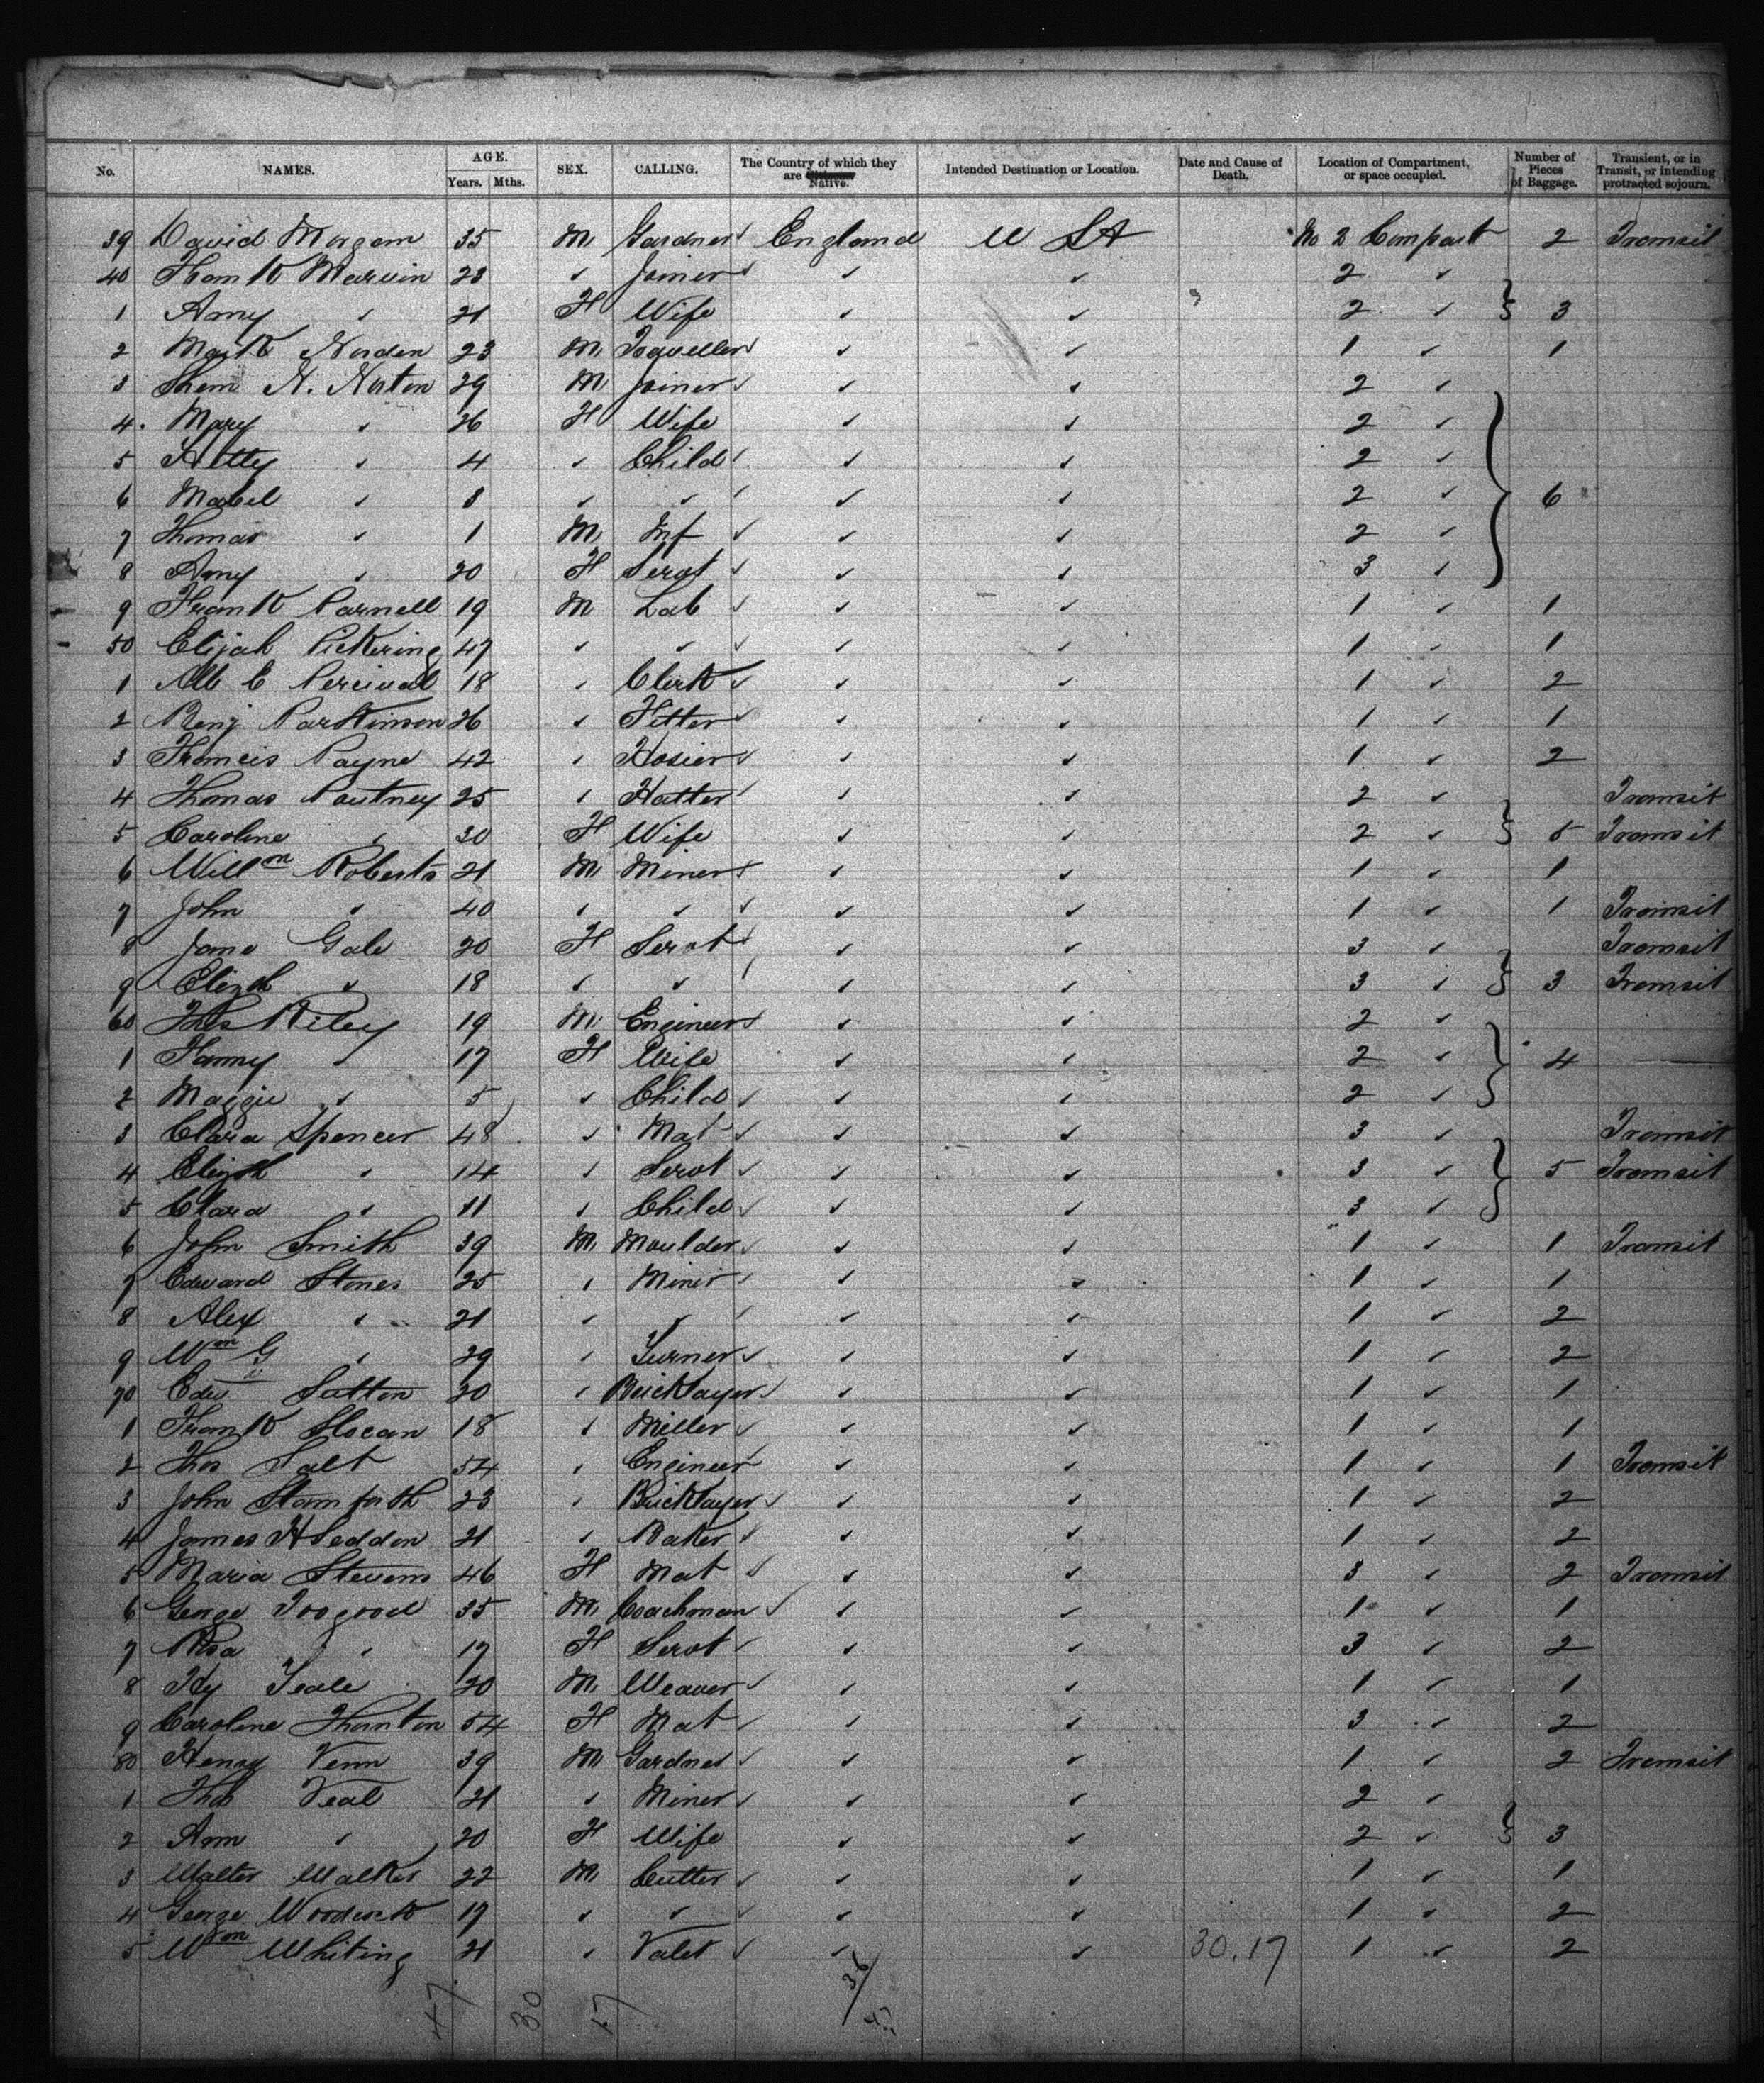 No. NAMES. AGE. Years. Mths. SEX. CALLING. The Country of which they are Native. Intended Destination or Location. Date and Cause of Death. Location of Compartment, or space occupied. Number of Pieces of Baggage. Transient, or in Transit, or intending protracted sojourn.
39 David Morgan 35 M Gardner England U St No 2 Compart 2 Transit
40 Frank Marvin 23 " Joiner " " 2 "
1 Amy " 21 F Wife " " 2 " 3
2 Mark Norden 23 M " " 1 " 1
3 Thom H. Norton 29 M Joiner " " 2 "
4 Mary " 26 F Wife " " 2 "
5 Hetty " 4 " Child " " 2 "
6 Mabel " 3 " " " " 2 " 6
7 Thomas " 1 M Inf " " 2 "
8 Amy " 20 F Servt " " 3 "
9 Frank Parnell 19 M Lab " " 1 " 1
50 Elijah Pickering 47 " " " " 1 " 1
1 Alb E Percival 18 " Clerk " " 1 " 2
2 Benj Parkinson 26 " Fitter " " 1 " 1
3 Francis Payne 42 " Hosier " " 1 " 2
4 Thomas Poutney 25 " Hatter " " 2 " Transit
5 Caroline " 30 F Wife " " 2 " 5 Transit
6 Willm Roberts 21 M Miner " " 1 " 1
7 John " 40 " " " " 1 " 1 Transit
8 Jane Gale 20 F Servt " " 3 " Transit
9 Elizth " 18 " " " " 3 " 3 Transit
60 Thos Riley 19 M Engineer " " 2 "
1 Fanny " 17 F Wife " " 2 " 4
2 Maggie " 5 " Child " " 2 "
3 Clara Spencer 48 " Mat " " 3 " Transit
4 Elizth " 14 " Servt " " 3 " 5 Transit
5 Clara " 11 " Child " " 3 "
6 John Smith 39 M Moulder " " 1 " 1 Transit
7 Edward Stones 25 " Miner " " 1 " 1
8 Alex " 21 " " " " 1 " 2
9 Wm G " 29 " Turner " " 1 " 2
70 Edw Sutton 20 " Bricklayer " " 1 " 1
1 Frank Slocan 18 " Miller " " 1 " 1
2 Thos Salt 54 " Engineer " " 1 " 1 Transit
3 John Stamforth 23 " Bricklayer " " 1 " 2
4 James H Seddon 21 " Baker " " 1 " 2
5 Maria Stevens 46 F Mat " " 3 " 2 Transit
6 George Toogood 35 M Coachman " " 1 " 1
7 Rosa " 17 F Servt " " 3 " 2
8 Hy Teale 20 M Weaver " " 1 " 1
9 Caroline Thornton 54 F Mat " " 3 " 2
80 Henry Venn 39 M Gardner " " 1 " 2 Transit
1 Thos Veal 21 " Miner " " 2 "
2 Ann " 20 F Wife " " 2 " 3
3 Walter Walker 22 M Cutter " " 1 " 1
4 George 19 " " " " 1 " 2
5 Wm Whiting 21 " Valet " " 30.17 1 " 2
47 30 17 36